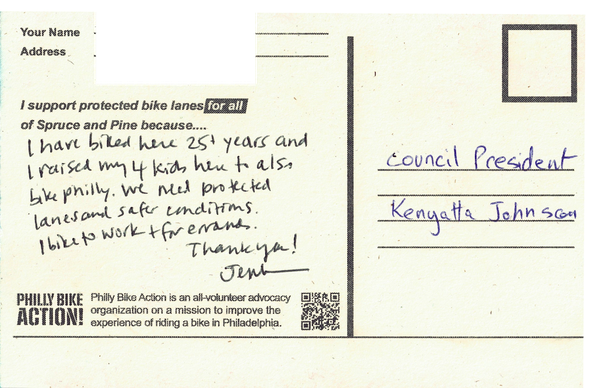 Your Name
Address
I support protected bike lanes for all
of Spruce and Pine because....
I have biked here 25+ years and
I raised my 4 kids here to also
bike philly. We need protected
lanes and safer conditions.
I bike to work + for errands.
Thank you!
PHILLY BIKE
ACTION!
Philly Bike Action is an all-volunteer advocacy
organization on a mission to improve the
experience of riding a bike in Philadelphia.
Council President
Kenyatta Johnson